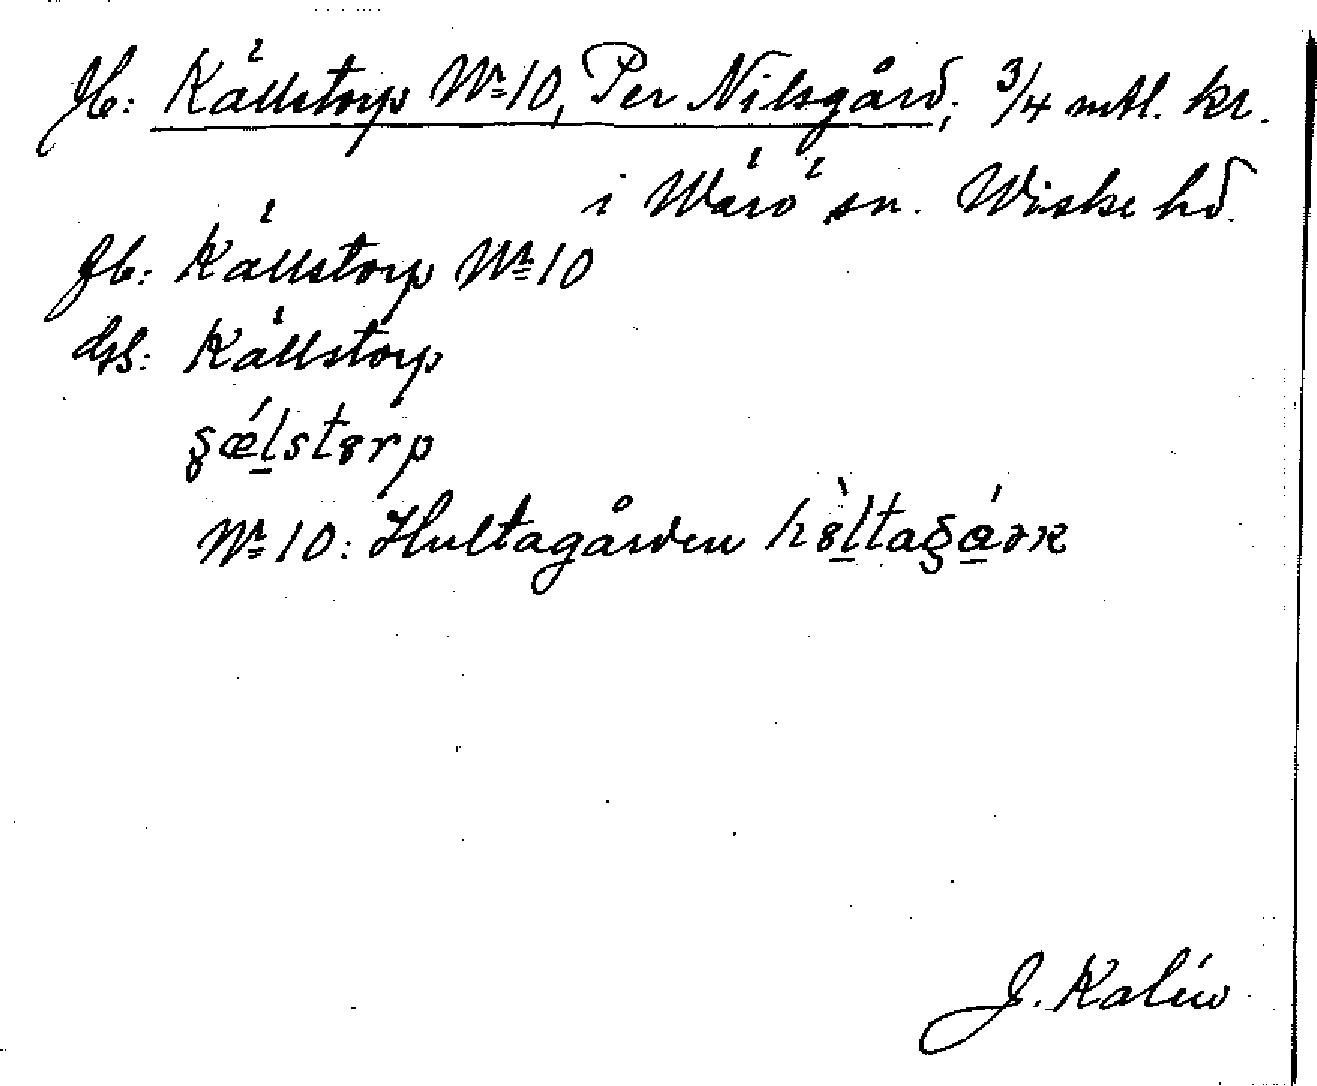 Jb: Källstorp No 10, Per Nilsgård; 3/4 mtl. kr.
i Wärö sn. Wiske hd.
Jb: Källstorp No 10
Gsk: Källstorp
No 10: Hultagården
J. Kalén